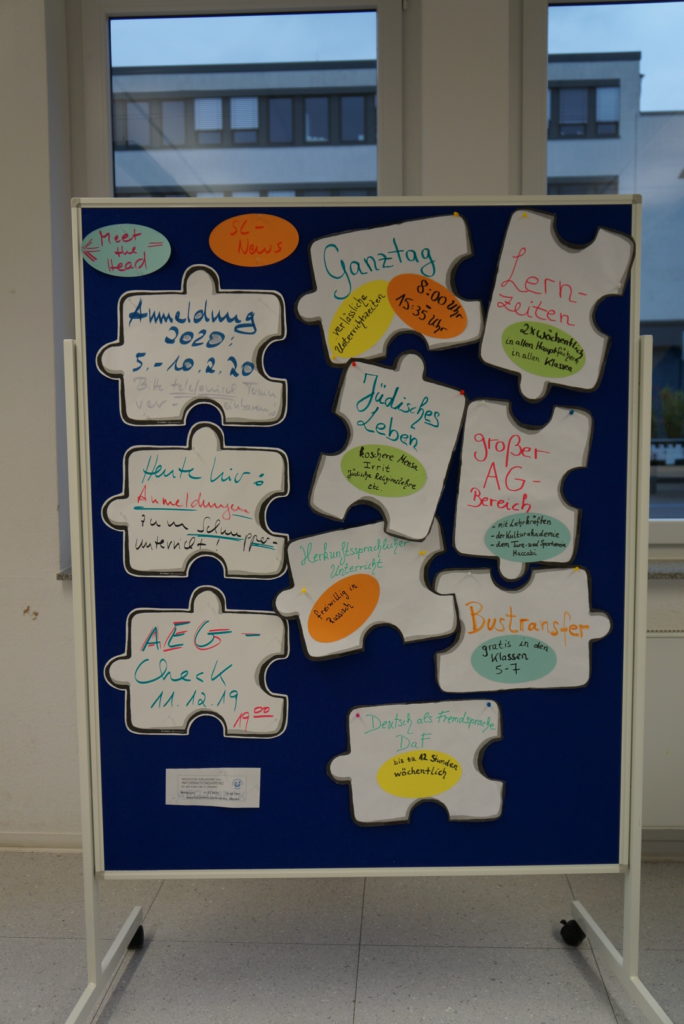 Meet
the
Head
SL-
News
Anmeldung
2020:
5.-10.2.20
Bitte telefonisch Termin
ver-
Heute hier:
Anmeldungen
zum Schnupper-
unterricht!
AEG-
Check
11.12.19
19 00
Ganztag
verlässliche
Unterrichtszeiten
8:00 Uhr
-
15:35 Uhr
Lern-
zeiten
2x wöchentlich
in allen Hauptfächern
in allen Klassen
Jüdisches
Leben
koschere Mensa
Ivrit
Jüdische Religionslehre
etc.
großer
AG-
Bereich
- mit Lehrkräften
- der Kulturakademie
- dem Turn- und Sportverein
Maccabi
Herkunftssprachlicher
Unterricht
freiwillig in
Russisch
Bustransfer
gratis in den
Klassen
5-7
Deutsch als Fremdsprache
DaF
bis zu 12 Stunden
wöchentlich